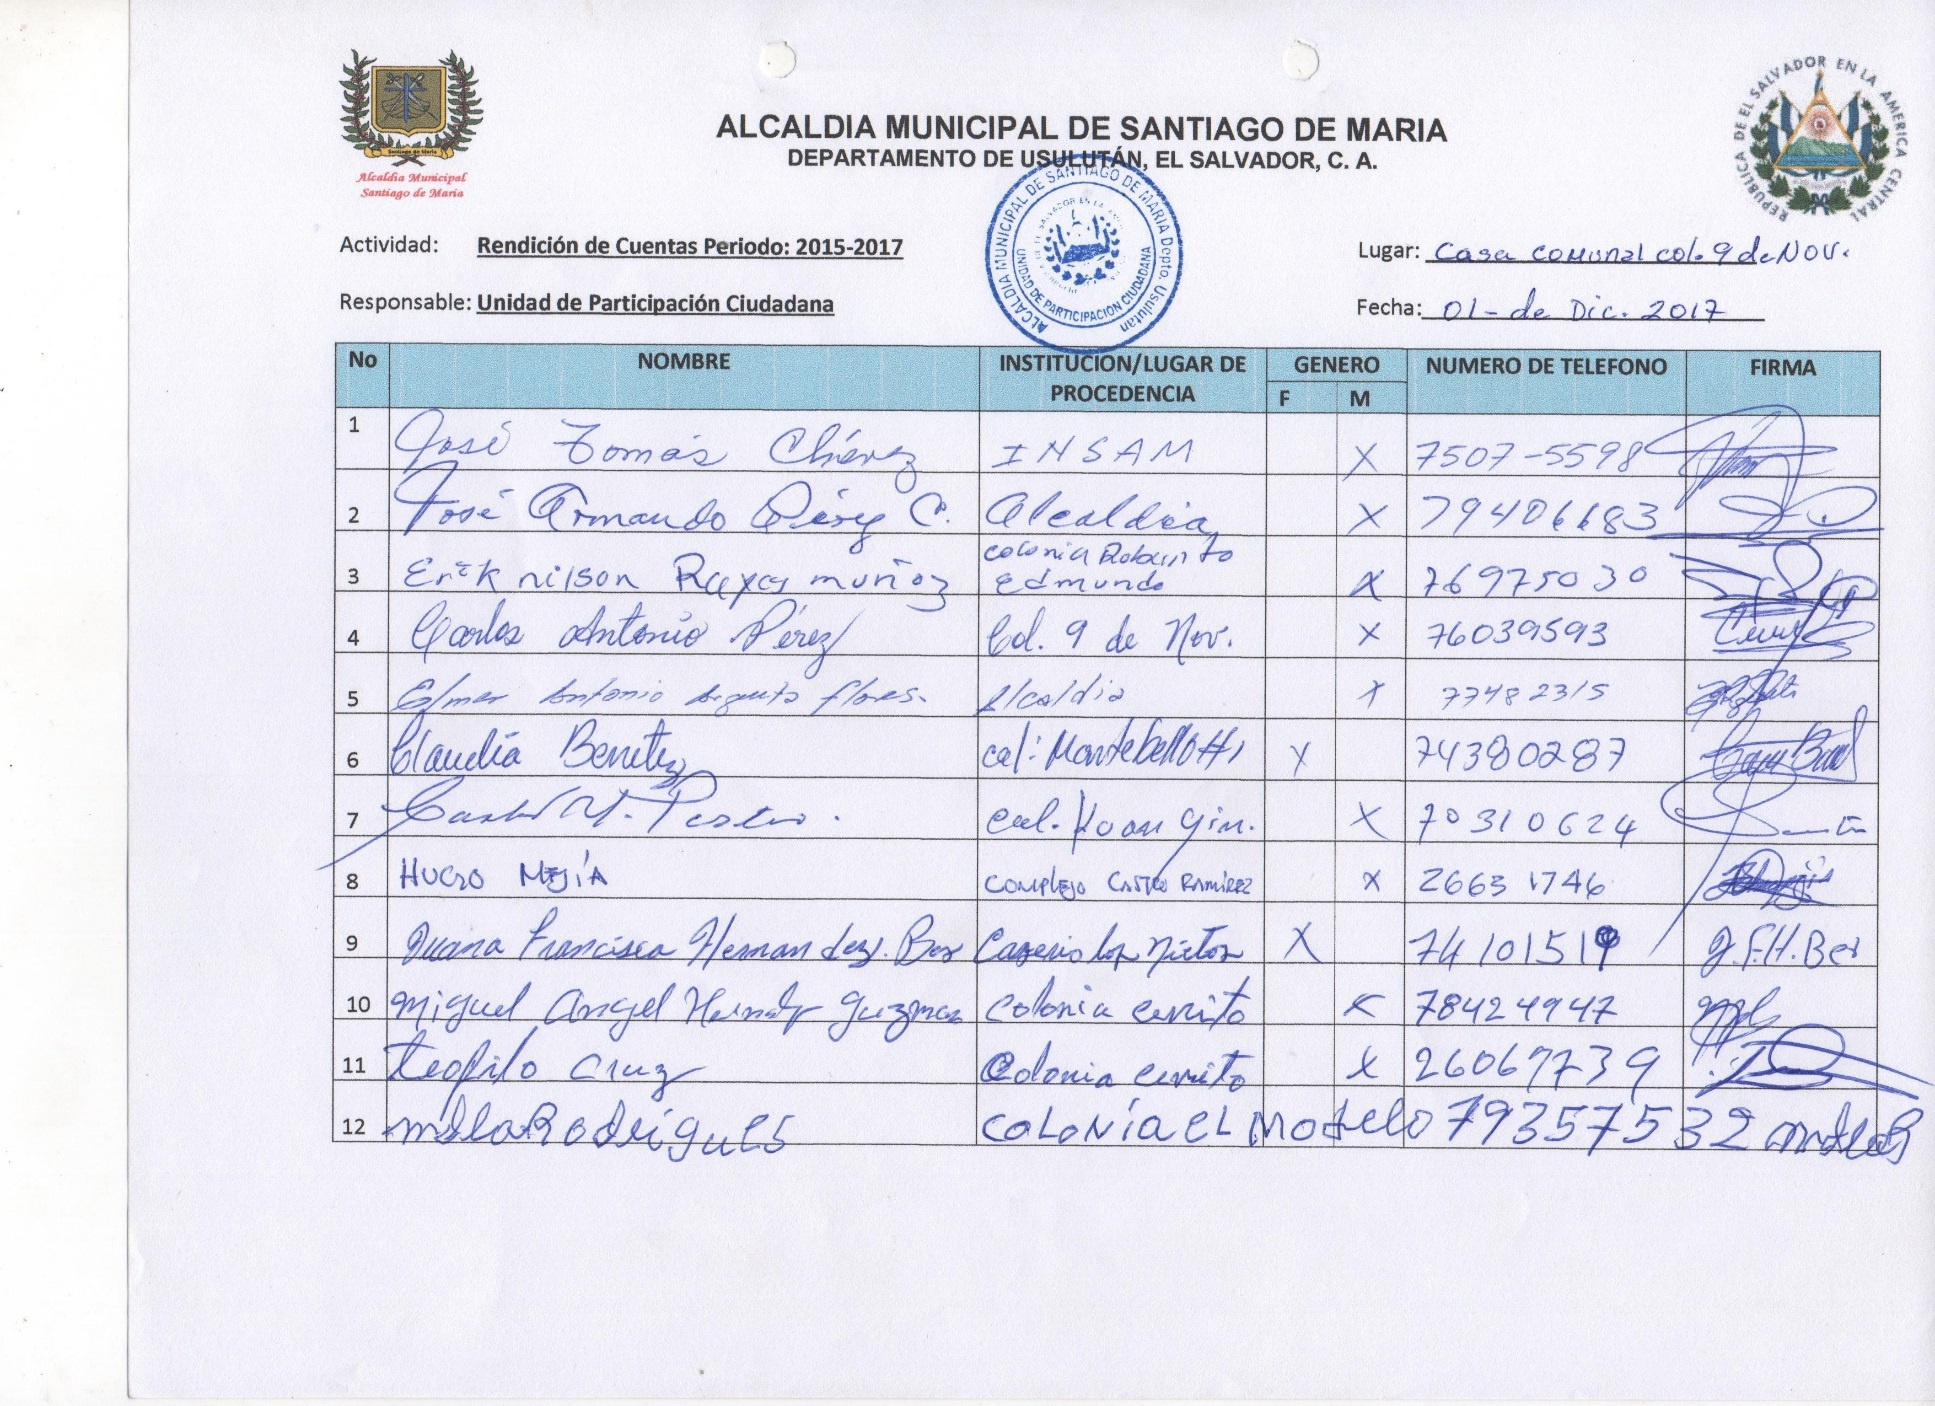 Santiago de María
Alcaldía Municipal
Santiago de María
REPUBLICA DE EL SALVADOR EN LA AMERICA CENTRAL
ALCALDIA MUNICIPAL DE SANTIAGO DE MARIA
DEPARTAMENTO DE USULUTÁN, EL SALVADOR, C. A.
ALCALDIA MUNICIPAL DE SANTIAGO DE MARIA Depto. Usulutan
UNIDAD DE PARTICIPACION CIUDADANA
Actividad: Rendición de Cuentas Periodo: 2015-2017 Lugar: Casa comunal col. 9 de Nov.
Responsable: Unidad de Participación Ciudadana Fecha: 01- de Dic. 2017
No NOMBRE INSTITUCION/LUGAR DE PROCEDENCIA GENERO F M NUMERO DE TELEFONO FIRMA
1 José Tomás Chávez INSAM X 7507-5598
2 José Armando Pérez C. Alcaldia X 79406683
3 Erik nilson muñoz colonia Edmundo X 76975030
4 Carlos Antonio Pérez Col. 9 de Nov. X 76039593
5 Elmer Antonio Argueta flores. Alcaldia X 77482315
6 Claudia Benitez col: Montebello #1 X 74380287
7 X 70310624
8 HUGO MEJÍA COMPLEJO CASTRO RAMÍREZ X 26631746
9 Juana Francisca Hernandez. Caserio los Nietos X 74101519 J.F.H.Ber
10 Miguel Angel Guzman Colonia cerrito X 78424947
11 teofilo Cruz Colonia cerrito X 26067739
12 Rodrigues COLONIA EL Modelo 79357532